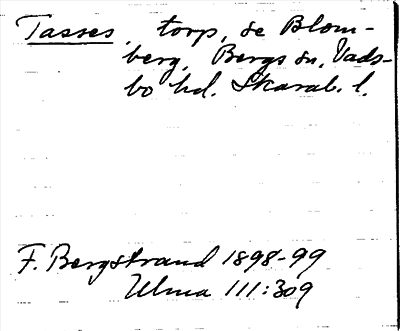 Tasses, torp, se Blom-
berg, Bergs sn, Vads-
bo hd. Skarab. l.
F. Bergstrand 1898-99
Ulma 111:309